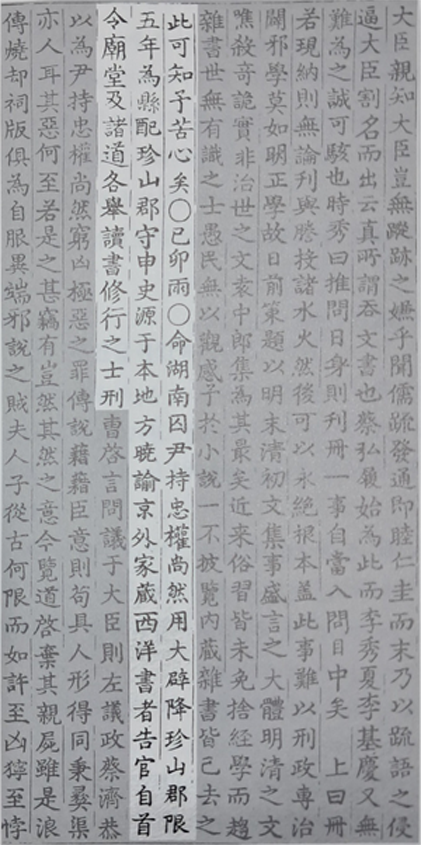 大臣親知大臣豈無蹤跡之嫌乎聞儒疏發通即睦仁圭而末乃以疏語之侵
逼大臣割名而出云真所謂吞文書也蔡弘履始為此而李秀夏李基慶又無
難為之誠可駭也時秀曰推問日身則刊冊一事自當入問目中矣　上曰冊
若現納則無論刊與謄投諸水火然後可以永絕根本盖此事難以刑政專治
闢邪學莫如明正學故日前策題以明末清初文集事盛言之大體明清之文
噍殺奇詭實非治世之文袁中郎集為其最矣近來俗習皆未免捨經學而趨
雜書世無有識之士愚民無以觀感予於小說一不披覽內藏雜書皆已去之
此可知予苦心矣○己卯雨○命湖南囚尹持忠權尚然用大辟降珍山郡限
五年為縣配珍山郡守申史源于本地方曉諭京外家蔵西洋書者告官自首
令廟堂及諸道各舉讀書修行之士刑曹啓言問議于大臣則左議政蔡濟恭
以為尹持忠權尚然窮凶極惡之罪傳說藉藉臣意則苟具人形得同秉彛渠
亦人耳其惡何至若是之甚竊有豈然其然之意今覽道啓棄其親屍雖是浪
傳燒却祠版俱為自服異端邪說之賊夫人子從古何限而如許至凶獰至悖